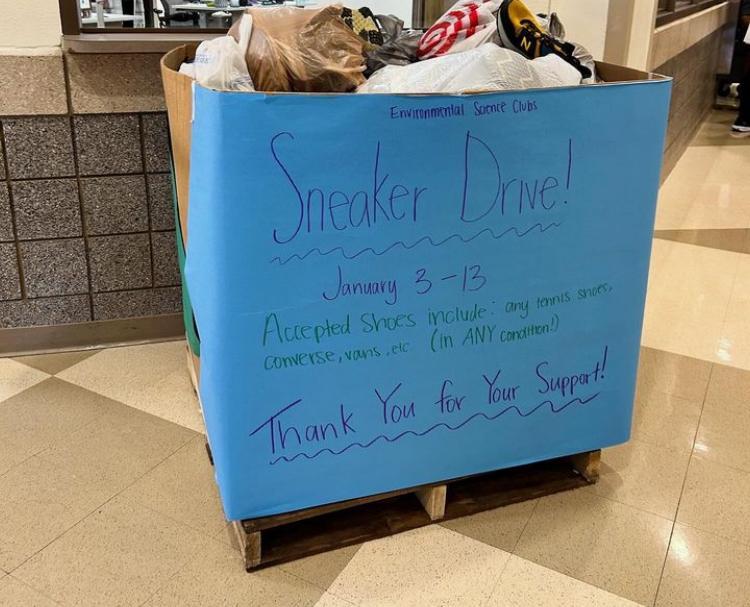 Environmental Science Clubs
Sneaker Drive!
January 3-13
Accepted Shoes include: any tennis shoes,
converse, vans, etc (in ANY condition!)
Thank You for Your Support!